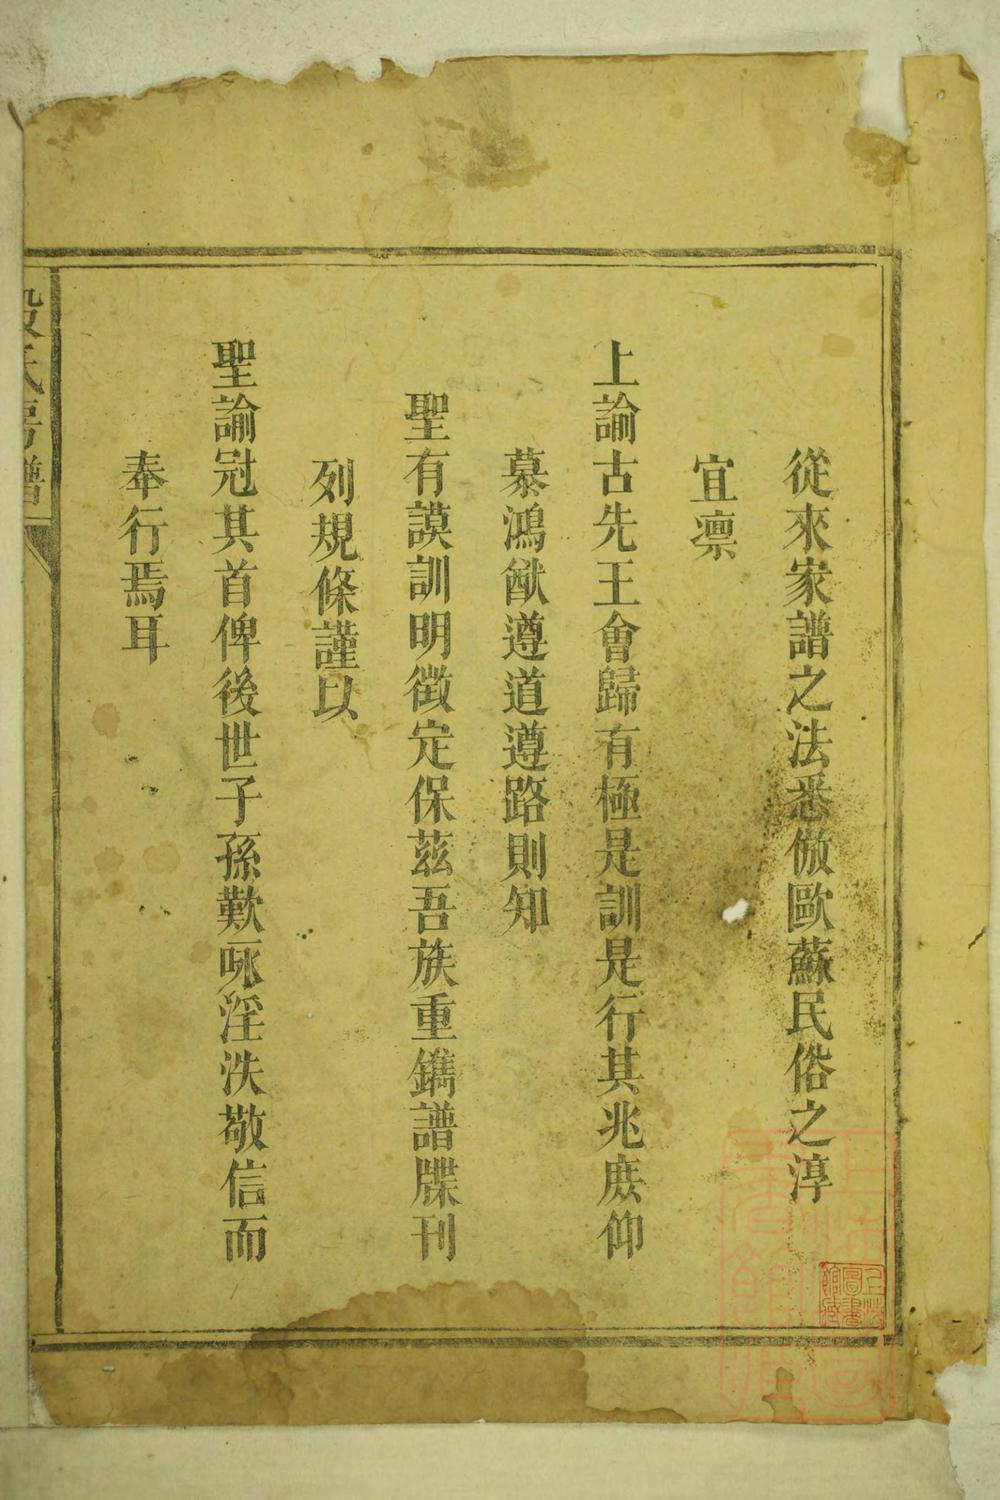 從來家譜之法悉倣歐蘇民俗之淳
宜凛
上諭古先王會歸有極是訓是行其兆庶仰
慕鴻猷遵道遵路則知
聖有謨訓明徵定保茲吾族重鐫譜牒刊
列規條謹以
聖諭冠其首俾後世子孫歎咏淫泆敬信而
奉行焉耳
段氏房譜